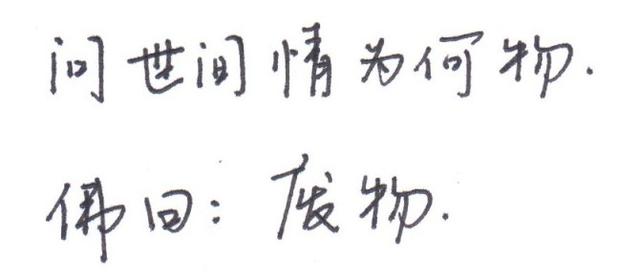 问世间情为何物.
佛曰: 废物.